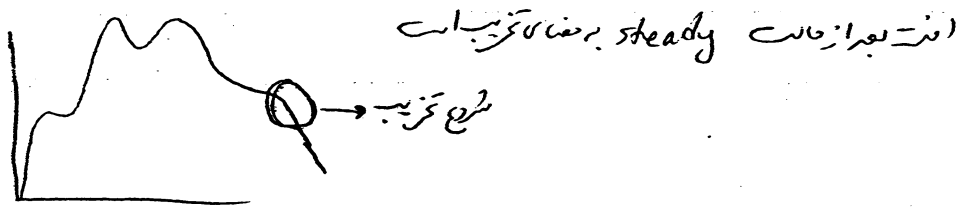 افت بعد از حالت steady به معنای تخریب است
شروع تخریب